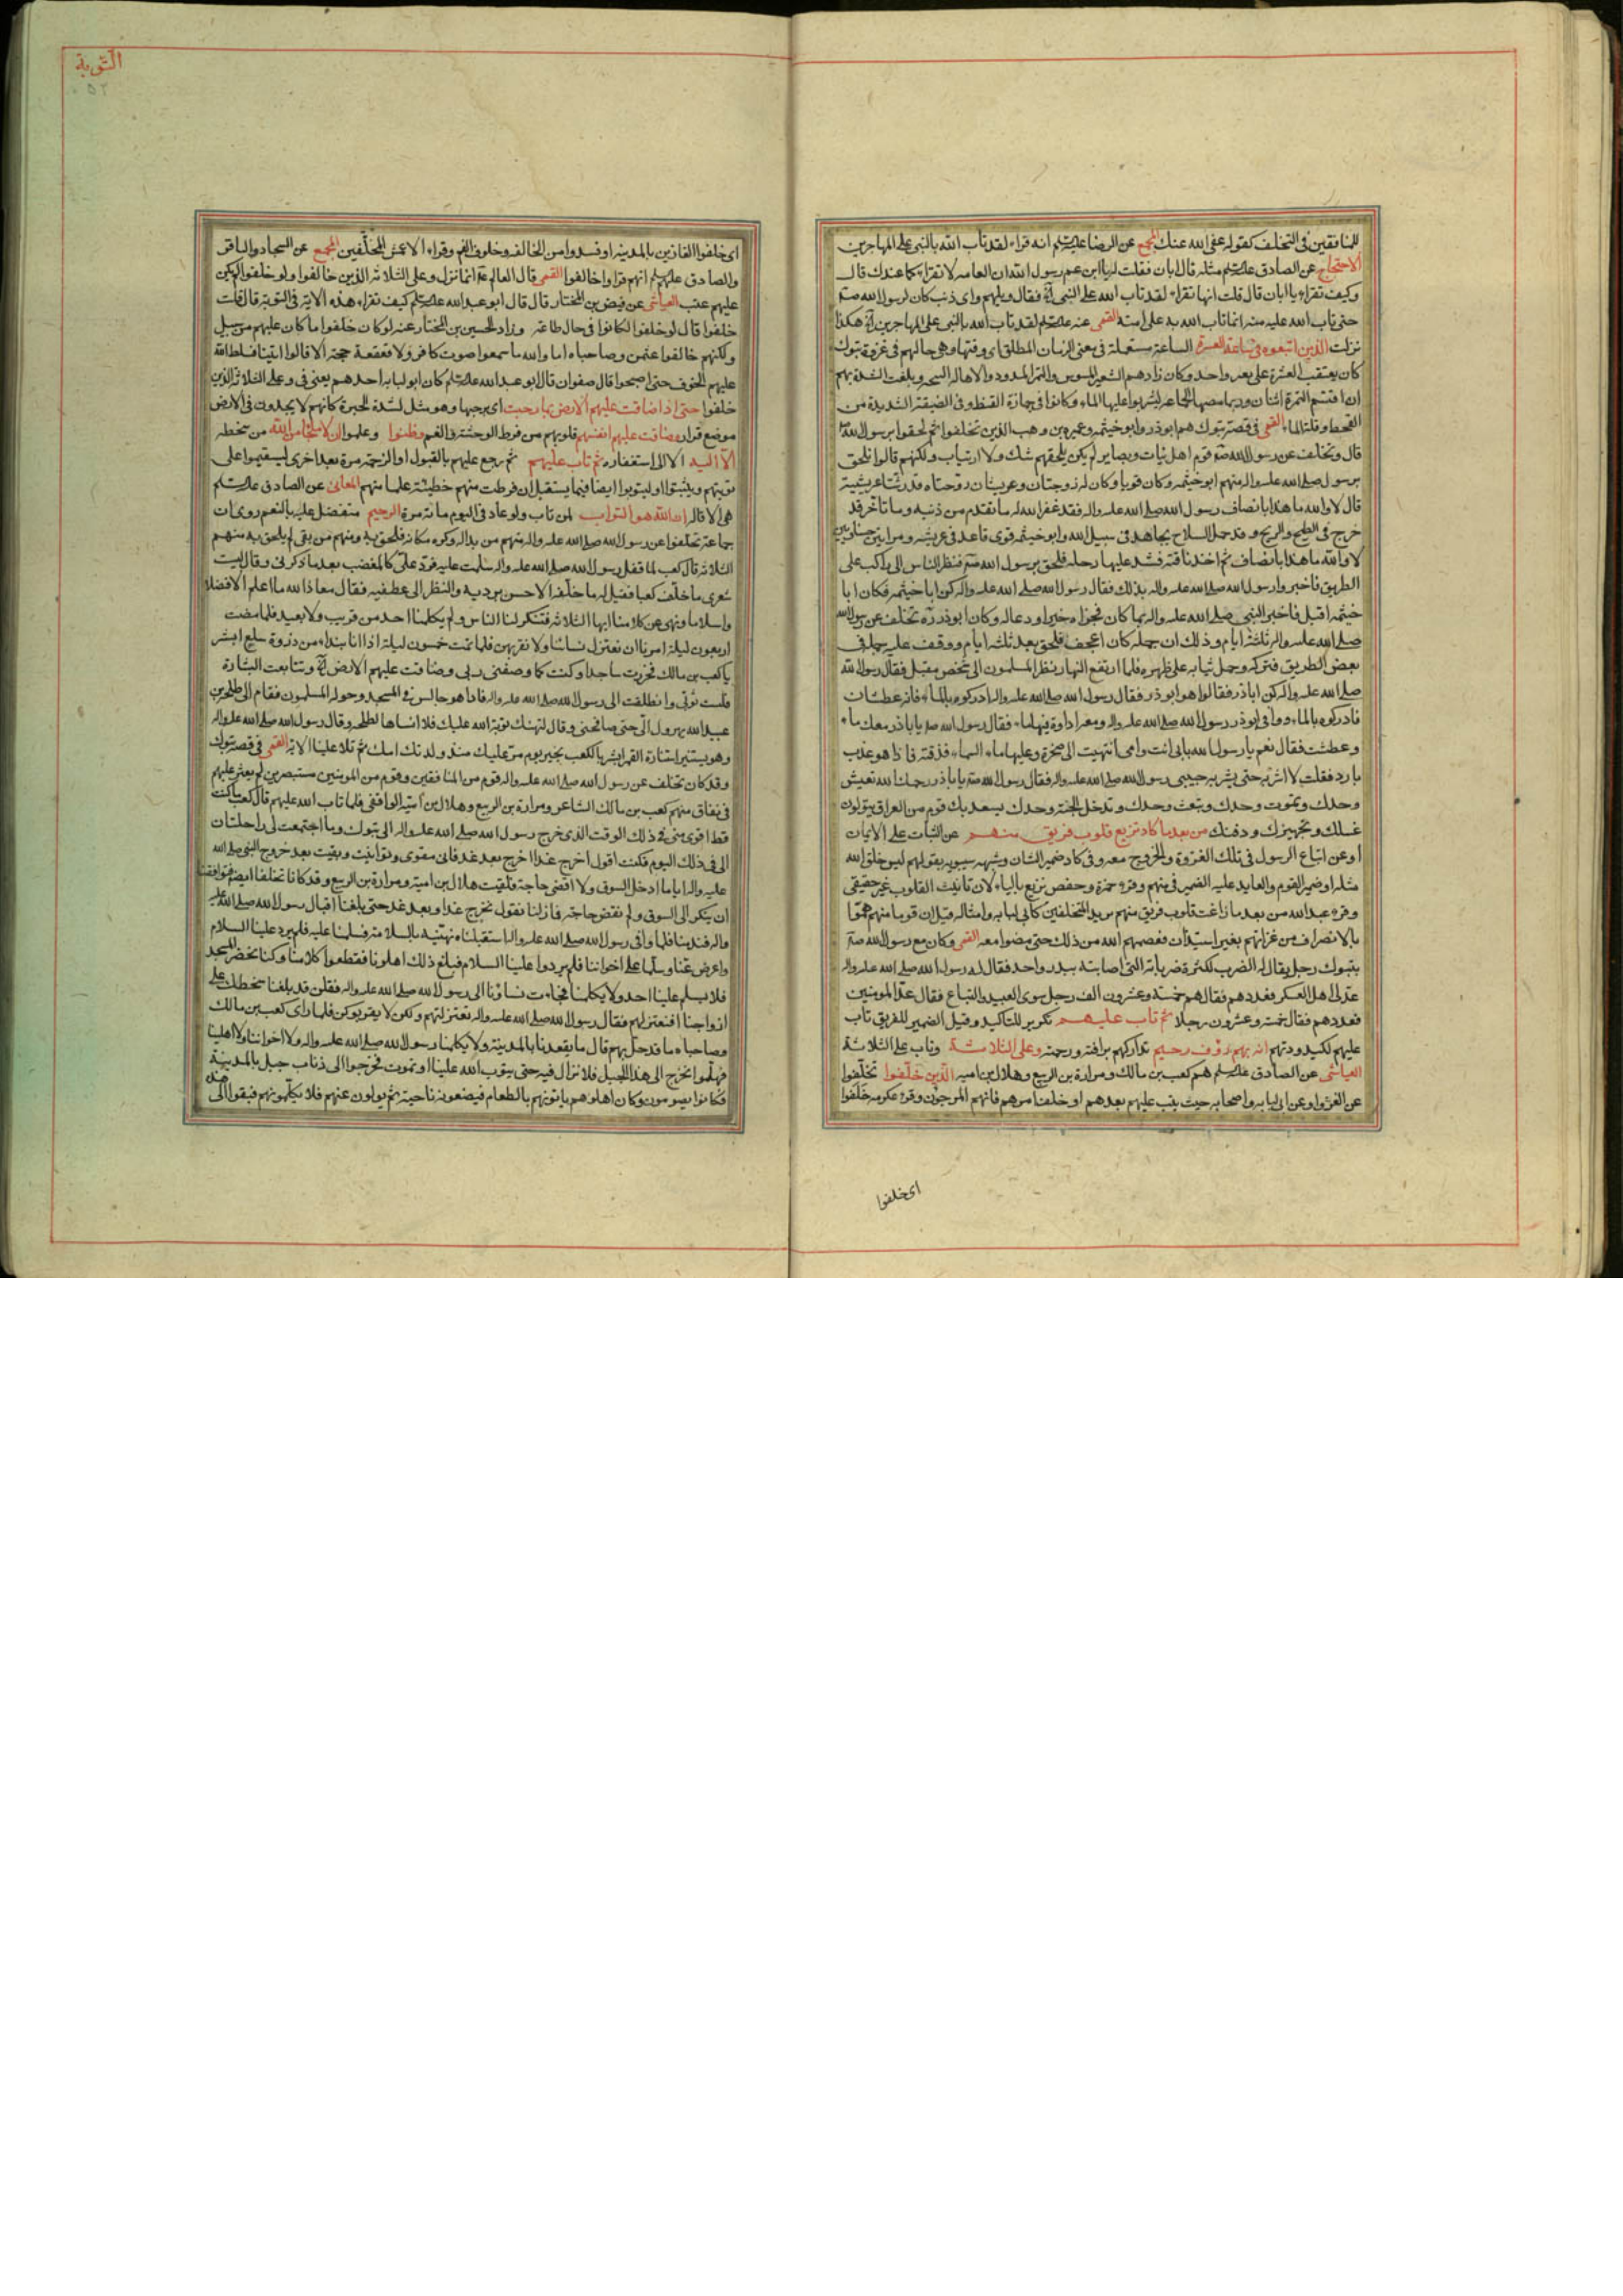 للمنافقين في التخلف كقوله عفى الله عنك المجمع عن الرضا عليه السلم انه قراء لقد تاب الله بالنبي على المهاجرين
الاحتجاج عن الصادق عليه السلم مثله قال ابان فقلت له يا ابن عم رسول الله ان العامه لا تقراء كما عندك قال
وكيف تقراء يا ابان قال قلت انها تقراء لقد تاب الله على النبي آه فقال ويلهم واي ذنب كان لرسول الله صلعم
حتى تاب الله عليه منه انما تاب الله به على امته القمي عنه عليه السلم لقد تاب الله بالنبي على المهاجرين آه هكذا
نزلت الذين اتبعوه في ساعة العسرة الساعة مستعملة في معنى الزمان المطلق اي وقتها وهي حالهم في غزوة تبوك
كان يعتقب العشرة على بعير واحد وكان زادهم الشعير المسوس والتمر المدود والاهاله السخه وبلغت الشدة بهم
ان اقتسم التمرة اثنان وربما مصها الجماعه ليشربوا عليها الماء وكانوا في حمازة القيظ وفي الضيقة الشديدة من
القحط وقلة الماء القمي في قصة تبوك هم ابوذر وابو خيثمه وعميره بن وهب الذين تخلفوا ثم لحقوا برسول الله صلعم
قال وتخلف عن رسول الله صلعم قوم اهل نيات وبصاير لم يكن يلحقهم شك ولا ارتياب ولكنهم قالوا نلحق
برسول الله صلى الله عليه واله منهم ابو خيثمه وكان قويا وكان له زوجتان وعريشان زوجتاه قد رشتا عريشيه
قال لا والله ما هذا بانصاف رسول الله صلى الله عليه واله قد غفر الله له ما تقدم من ذنبه وما تاخر قد
خرج في الضح والريح وقد حمل السلاح يجاهد في سبيل الله وابو خيثمه قوي قاعد في عريشه وامراتين حسناوين
لا والله ما هذا بانصاف ثم اخذ ناقته فشد عليها رحله فلحق برسول الله صلعم فنظر الناس الى راكب على
الطريق فاخبروا رسول الله صلى الله عليه واله بذلك فقال رسول الله صلى الله عليه واله كن ابا خيثمه فكان ابا
خيثمه اقبل فاخبر النبي صلى الله عليه واله بما كان فجزاه خيرا ودعا له وكان ابوذر ره تخلف عن رسول الله
صلى الله عليه واله ثلثة ايام وذلك ان جمله كان اعجف فلحق بعد ثلثة ايام ووقف عليه جمله في
بعض الطريق فتركه وحمل ثيابه على ظهره فلما ارتفع النهار نظر المسلمون الى شخص مقبل فقال رسول الله
صلى الله عليه واله كن اباذر فقالوا هو ابوذر فقال رسول الله صلى الله عليه واله ادركوه بالماء فانه عطشان
فادركوه بالماء ووافى ابوذر رسول الله صلى الله عليه واله ومعه اداوة فيها ماء فقال رسول الله صلعم يا اباذر معك ماء
وعطشت فقال نعم يا رسول الله بابي انت وامي انتهيت الى صخرة وعليها ماء السماء فذقته فاذا هو عذب
بارد فقلت لا اشربه حتى يشربه حبيبي رسول الله صلى الله عليه واله فقال رسول الله صلعم يا اباذر رحمك الله تعيش
وحدك وتموت وحدك وتبعث وحدك وتدخل الجنة وحدك يسعد بك قوم من العراق يتولون
غسلك وتجهيزك ودفنك من بعد ما كاد تزيغ قلوب فريق منهم عن الثبات على الايمان
او عن اتباع الرسول في تلك الغزوة والخروج معه وفي كاد ضمير الشان وشبهه سيبويه بقولهم ليس خلق الله
مثله او ضمير القوم والعايد عليه الضمير في منهم وقرء حمزة وحفص يزيغ بالياء لان تانيث القلوب غير حقيقي
وقرء عبد الله من بعد ما زاغت قلوب فريق منهم يريد المتخلفين كابي لبابه وامثاله قيل ان قوما منهم هموا
بالانصراف من غزاتهم بغير استيذان فعصمهم الله من ذلك حتى مضوا معه القمي وكان مع رسول الله صلعم
بتبوك رجل يقال له المضرب لكثرة ضرباته التي اصابته ببدر واحد فقال له رسول الله صلى الله عليه واله
عد لي اهل العسكر فعددهم فقال هم خمسة وعشرون الف رجل سوى العبيد والتباع فقال عد المومنين
فعددهم فقال خمسة وعشرون رجلا ثم تاب عليهم تكرير للتاكيد وقيل الضمير للفريق تاب
عليهم لكيدودتهم انه بهم رؤف رحيم تداركهم برافته ورحمته وعلى الثلاثة وتاب على الثلاثة
العياشي عن الصادق عليه السلم هم كعب بن مالك ومرارة بن الربيع وهلال بن اميه الذين خلفوا تخلفوا
عن الغزو او عن ابي لبابه واصحابه حيث يتب عليهم بعدهم او خلف امرهم فانهم المرجون وقرء عكرمه خلفوا
اي خلفوا
التوبة
٥٢
اي خلفوا الغازين بالمدينه او فسدوا من الخالفه وخلوف الفم وقراء الاعمش المخلفين المجمع عن السجاد والباقر
والصادق عليهم السلم انهم قراوا خالفوا القمي قال العالم عه انما نزل وعلى الثلاثه الذين خالفوا ولو خلفوا لم يكن
عليهم عتب العياشي عن فيض بن المختار قال قال ابو عبد الله عليه السلم كيف تقراء هذه الايه في التوبة قال قلت
خلفوا قال لو خلفوا لكانوا في حال طاعة وزاد الحسين بن المختار عنه لو كان خلفوا ما كان عليهم من سبيل
ولكنهم خالفوا عثمن وصاحباه اما والله ما سمعوا صوت كافر ولا قعقعة حجر الا قالوا اتينا فسلط الله
عليهم الخوف حتى اصبحوا قال صفوان قال ابو عبد الله عليه السلم كان ابو لبابه احدهم يعني في وعلى الثلاثة الذين
خلفوا حتى اذا ضاقت عليهم الارض بما رحبت اي برحبها وهو مثل لشدة الحيرة كانهم لا يجدون في الارض
موضع قرار وضاقت عليهم انفسهم قلوبهم من فرط الوحشة والغم وظنوا وعلموا ان لا ملجا من الله من سخطه
الا اليه الا الى استغفاره ثم تاب عليهم ثم رجع عليهم بالقبول او الرحمة مرة بعد اخرى ليستقيموا على
توبتهم ويثبتوا او ليتوبوا ايضا فيما يستقبل ان فرطت منهم خطيئة علما منهم المعاني عن الصادق عليه السلم
هي الاقاله ان الله هو التواب لمن تاب ولو عاد في اليوم مائة مرة الرحيم متفضل عليه بالنعم روي ان
جماعة تخلفوا عن رسول الله صلى الله عليه واله منهم من بدا له وكره مكانه فلحق به ومنهم من بقي لم يلحق به منهم
الثلاثه قال كعب لما قفل رسول الله صلى الله عليه واله سلمت عليه فرد علي كالمغضب بعد ما ذكرني وقال ليت
شعري ما خلف كعبا فقيل له ما خلفه الا حسن برديه والنظر الى عطفيه فقال معاذ الله ما اعلم الا فضلا
واسلاما ونهى عن كلامنا ايها الثلاثه فتنكر لنا الناس ولم يكلمنا احد من قريب ولا بعيد فلما مضت
اربعون ليلة امرنا ان نعتزل نساءنا ولا نقربهن فلما تمت خمسون ليلة اذا انا بنداء من ذروة سلع ابشر
يا كعب بن مالك فخررت ساجدا وكنت كما وصفني ربي وضاقت عليهم الارض آه وتتابعت البشارة
فلبست ثوبي وانطلقت الى رسول الله صلى الله عليه واله فاذا هو جالس في المسجد وحوله المسلمون فقام الي طلحة بن
عبيد الله يهرول الي حتى صافحني وقال لتهنك توبة الله عليك فلا انساها لطلحه وقال رسول الله صلى الله عليه واله
وهو يستنير استنارة القمر ابشر يا كعب بخير يوم مر عليك منذ ولدتك امك ثم تلا علينا الاية القمي في قصة تبوك
وقد كان تخلف عن رسول الله صلى الله عليه واله قوم من المنافقين وقوم من المومنين مستبصرين لم يعثر عليهم
في نفاق منهم كعب بن مالك الشاعر ومرارة بن الربيع وهلال بن امية الواقفي فلما تاب الله عليهم قال كعب ما كنت
قط اقوى مني في ذلك الوقت الذي خرج رسول الله صلى الله عليه واله الى تبوك وما اجتمعت لي راحلتان
الا في ذلك اليوم فكنت اقول اخرج غدا اخرج بعد غد فاني مقوى وتوانيت وبقيت بعد خروج النبي صلى الله
عليه واله اياما ادخل السوق ولا اقضي حاجة فلقيت هلال بن امية ومرارة بن الربيع وقد كانا تخلفا ايضا فتوافقنا
ان نبكر الى السوق ولم نقض حاجة فما زلنا نقول نخرج غدا وبعد غد حتى بلغنا اقبال رسول الله صلى الله عليه
واله فندمنا فلما وافى رسول الله صلى الله عليه واله استقبلناه نهنئه بالسلامة فسلمنا عليه فلم يرد علينا السلام
واعرض عنا وسلمنا على اخواننا فلم يردوا علينا السلام فبلغ ذلك اهلونا فقطعوا كلامنا وكنا نحضر المسجد
فلا يسلم علينا احد ولا يكلمنا فجاءت نساؤنا الى رسول الله صلى الله عليه واله فقلن قد بلغنا سخطك على
ازواجنا افنعتزلهم فقال رسول الله صلى الله عليه واله لا تعتزلنهم ولكن لا يقربوكن فلما راى كعب بن مالك
وصاحباه ما قد حل بهم قال ما يقعدنا بالمدينة ولا يكلمنا رسول الله صلى الله عليه واله ولا اخواننا ولا اهلينا
فهلموا نخرج الى هذا الجبل فلا نزال فيه حتى يتوب الله علينا او نموت فخرجوا الى ذناب جبل بالمدينة
فكانوا يصومون وكان اهلوهم ياتونهم بالطعام فيضعونه ناحية ثم يولون عنهم فلا يكلمونهم فبقوا على هذه